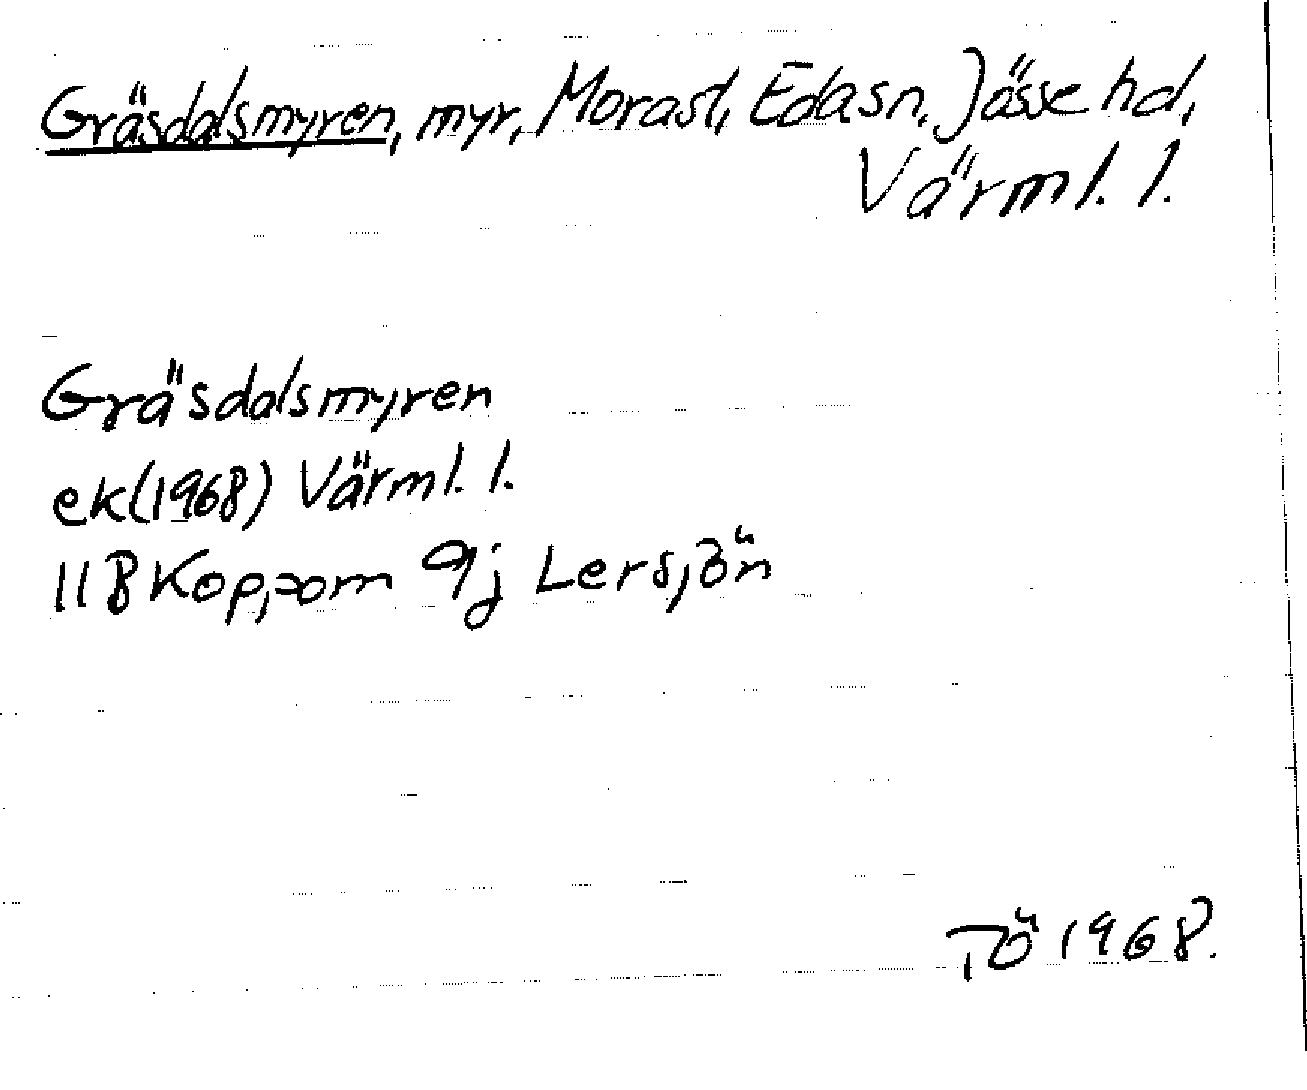 Gräsdalsmyren, myr, Morast, Eda sn, Jösse hd,
Värml. l.
Gräsdalsmyren
ek (1968) Värml. l.
11B Koppom 9j Lersjön
TÖ 1968.